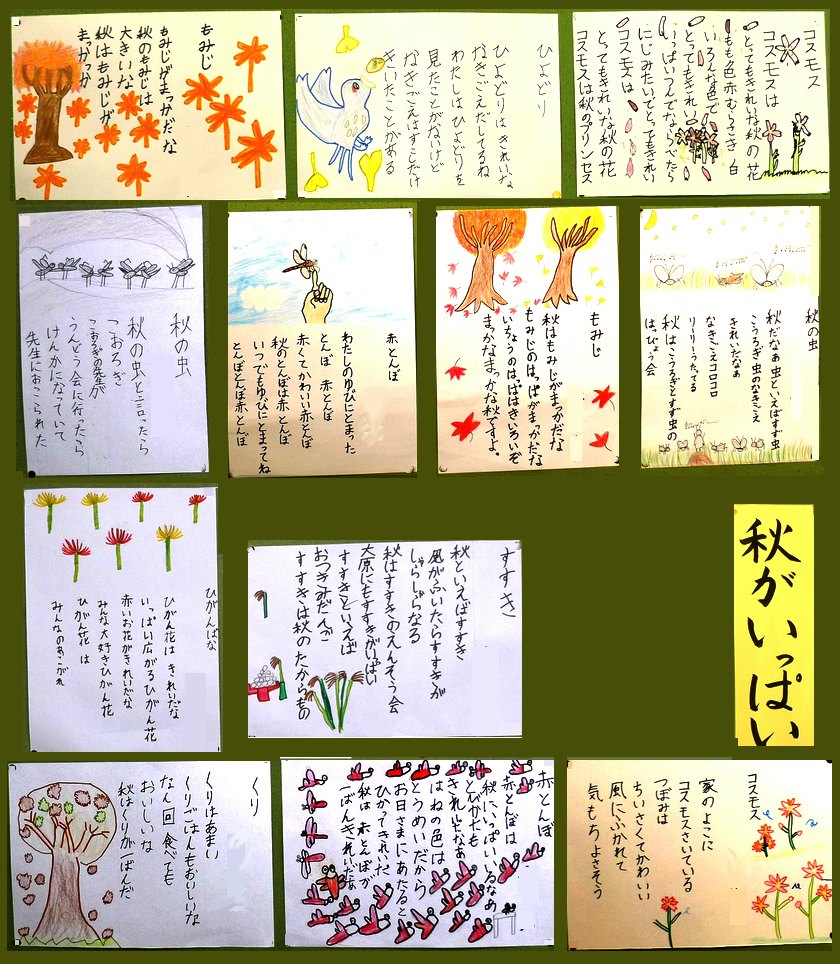 コスモス
コスモスは
とってもきれいな秋の花
もも色赤むらさき白
いろいろな色で
とってもきれい
いっぱいつんでならべたら
にじみたいでとってもきれい
コスモスは
とってもきれいな秋の花
コスモスは秋のプリンセス
ひよどり
ひよどりは きれいな
なきごえだしてるね
わたしはひよどりを
見たことがないけど
なきごえはすこしだけ
きいたことがある
もみじ
もみじがまっかだな
秋のもみじは
大きいな
秋はもみじが
まっかっか
秋の虫
秋だなぁ虫といえばすず虫
こうろぎ虫のなきごえ
きれいだなぁ
なきごえコロコロ
リリリーうたってる
秋はこうろぎとすず虫の
はっぴょう会
もみじ
秋はもみじがまっかだな
もみじのはっぱがまっかだな
いちょうのはっぱはきいろいぞ
まっかなまっかな秋ですよ。
赤とんぼ
わたしのゆびにとまった
とんぼ 赤とんぼ
赤くてかわいい赤とんぼ
秋のとんぼは赤とんぼ
いつでもゆびにとまってね
とんぼとんぼ赤とんぼ
秋の虫
秋の虫と言ったら
こおろぎ
こおろぎの先生が
うんどう会に行ったら
けんかになっていて
先生におこられた
秋がいっぱい
すすき
秋といえばすすき
風がふいたらすすきが
しゃらしゃらなる
秋はすすきのえんそう会
大原にもすすきがいっぱい
すすきといえば
おつきみだんご
すすきは秋のたからもの
ひがんばな
ひがん花は きれいだな
いっぱい広がるひがん花
赤いお花がきれいだな
みんな大好きひがん花
ひがん花は
みんなのあこがれ
コスモス
家のよこに
コスモスさいている
つぼみは
ちいさくてかわいい
風にふかれて
気もちよさそう
赤とんぼ
赤とんぼは
秋にいっぱいいるなあ
とんでても
きれいだなあ
はねの色は
とうめいだから
お日さまにあたると
ひかってきれいだ
秋は赤とんぼが
一ばんきれいだなぁ
くり
くりはあまい
くりごはんもおいしいな
なん回食べても
おいしいな
秋はくりが一ばんだ